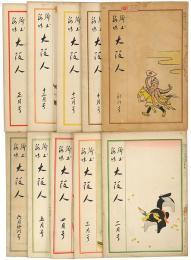 郷土趣味
大阪人
七月号
郷土趣味
大阪人
十二月号
郷土趣味
大阪人
十一月号
郷土趣味
大阪人
十月号
郷土趣味
大阪人
郷土趣味
大阪人
郷土趣味
大阪人
五月号
郷土趣味
大阪人
四月号
郷土趣味
大阪人
三月号
郷土趣味
大阪人
二月号